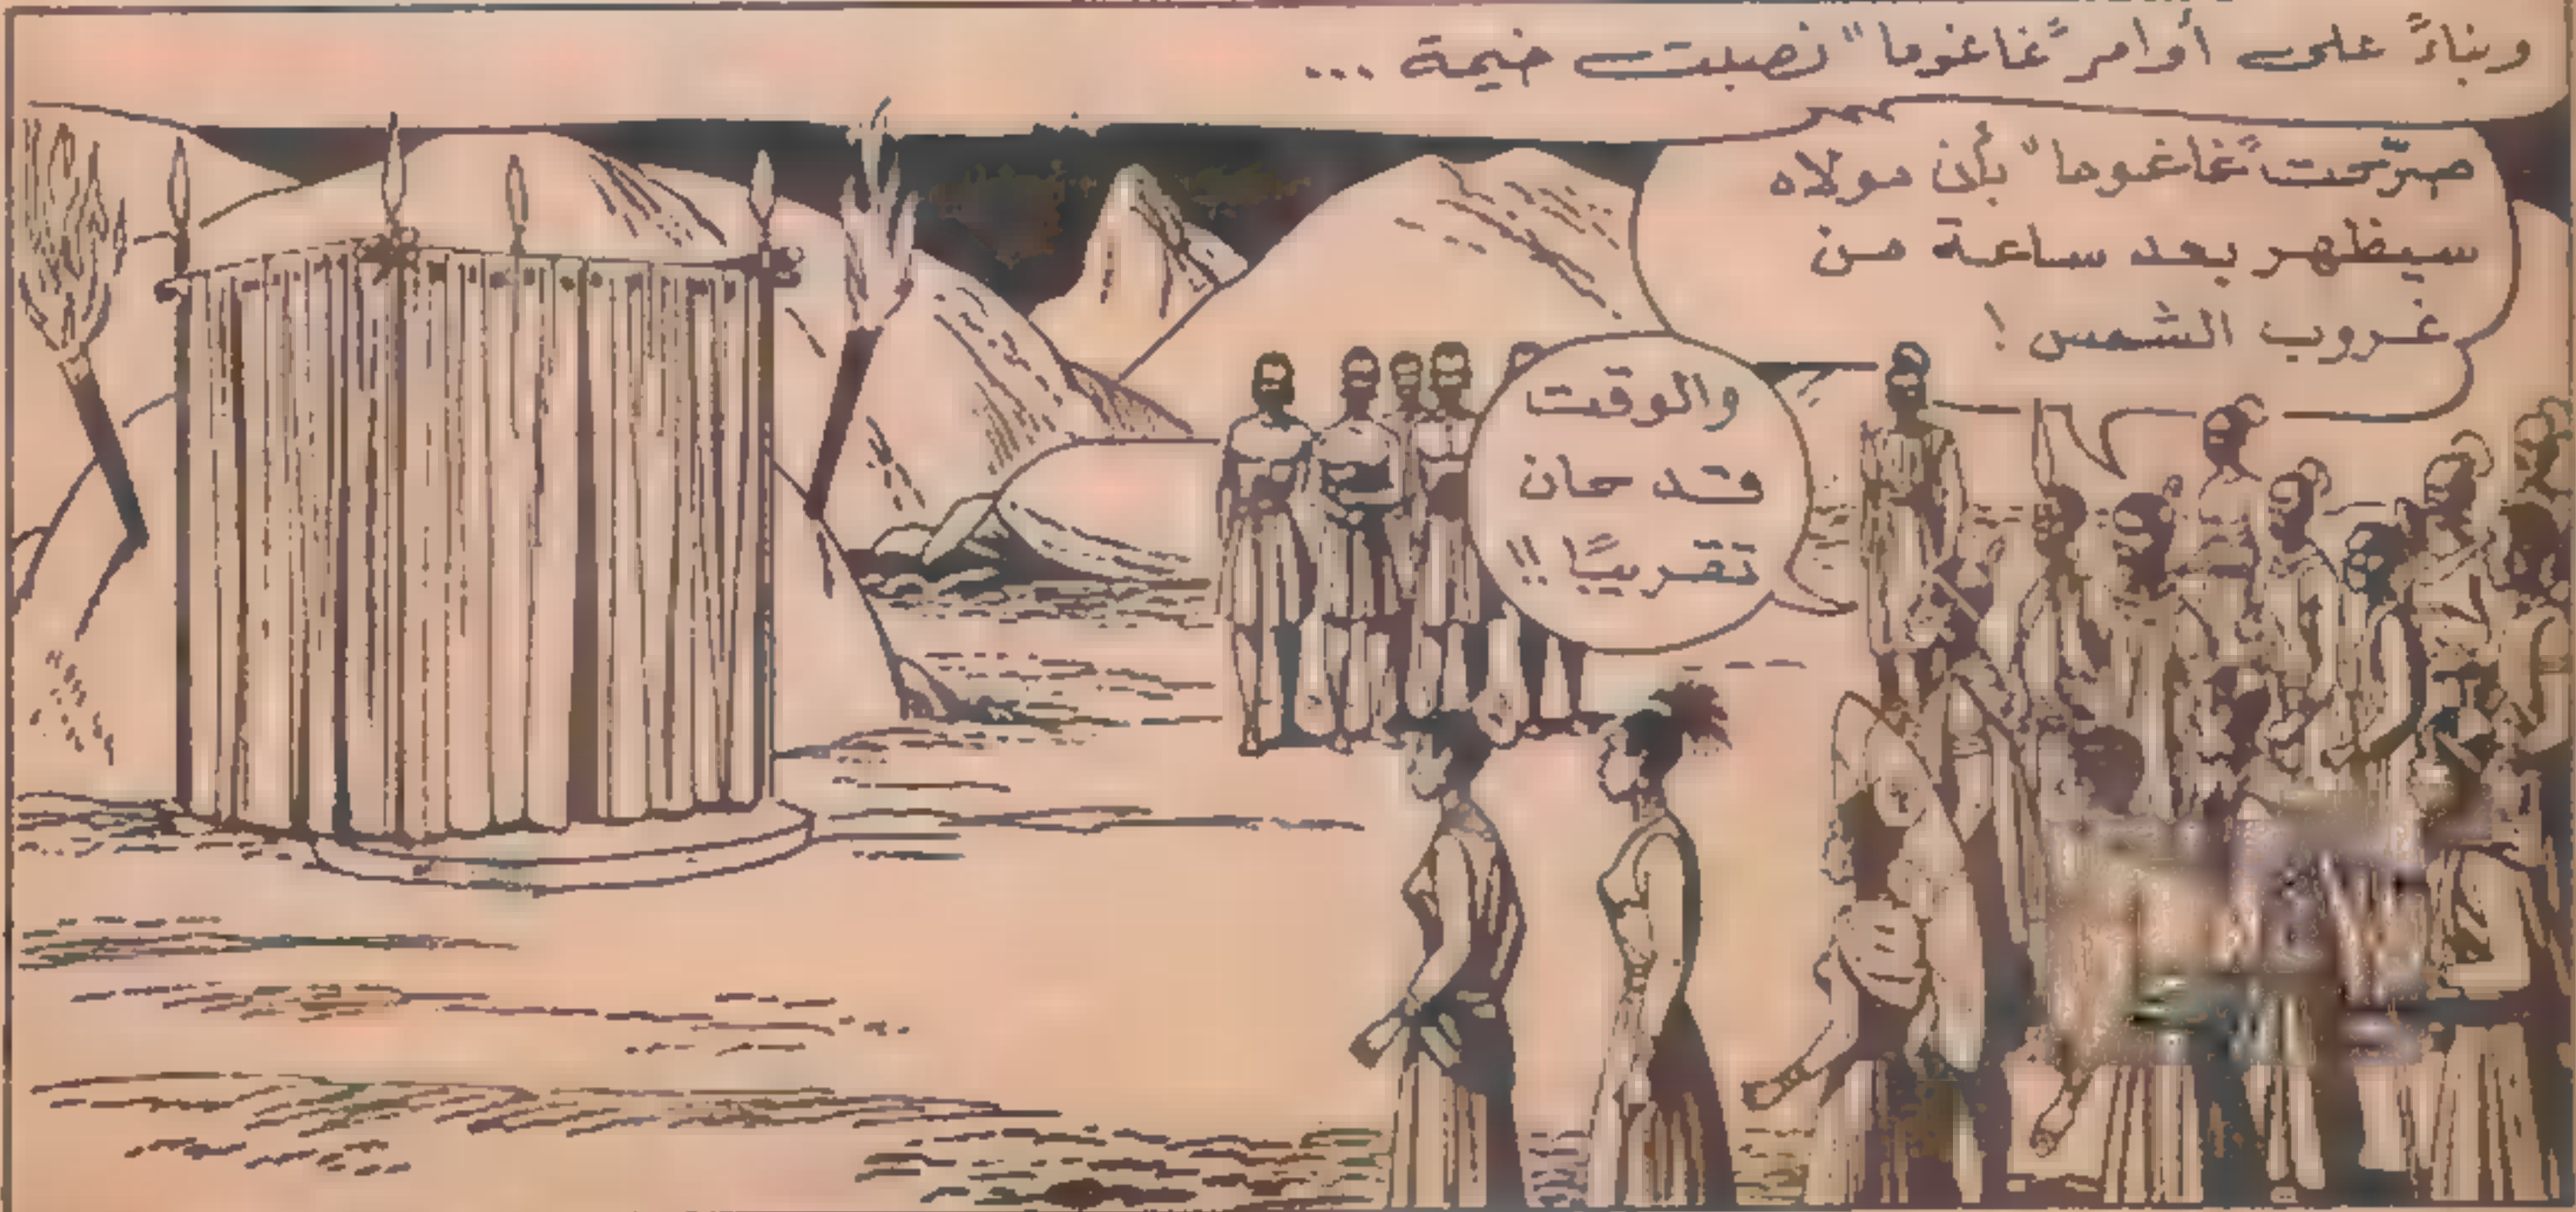 وبناءً على أوامر "غاغوما" نصبت خيمة ...
صرّحت "غاغوما" بأن مولاه
سيظهر بعد ساعة من
غروب الشمس !
والوقت
قد حان
تقريبًا !!